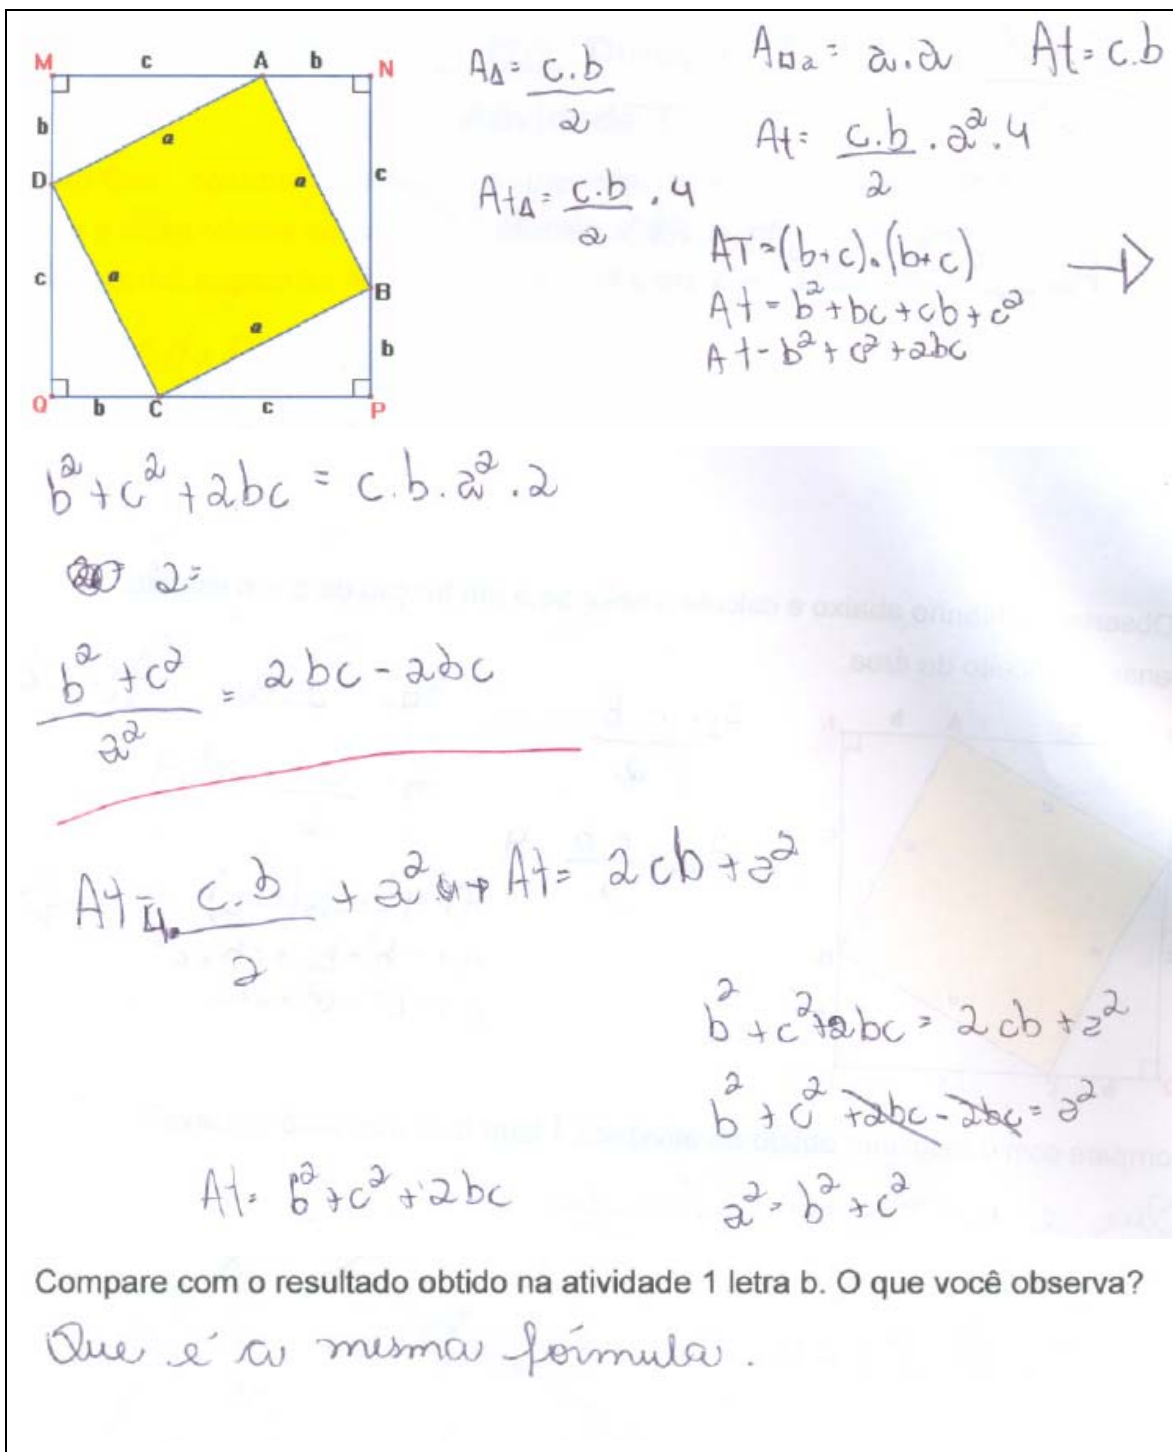 M c A b N
b
D
a
a
c
c
a
B
a
b
Q b C c P
A△ = c.b/2
At△ = c.b/2 . 4
A□a = a.a At = c.b
At = c.b/2 . a² . 4
AT = (b+c).(b+c)
At = b² + bc + cb + c²
At - b² + c² + 2bc
b² + c² + 2bc = c.b.a².2
2=
b² + c²/a² = 2bc - 2bc
At = 4. c.b/2 + a² At = 2cb + a²
b² + c² + 2bc = 2cb + a²
b² + c² + 2bc - 2bc = a²
At = b² + c² + 2bc
a² = b² + c²
Compare com o resultado obtido na atividade 1 letra b. O que você observa?
Que é a mesma fórmula.